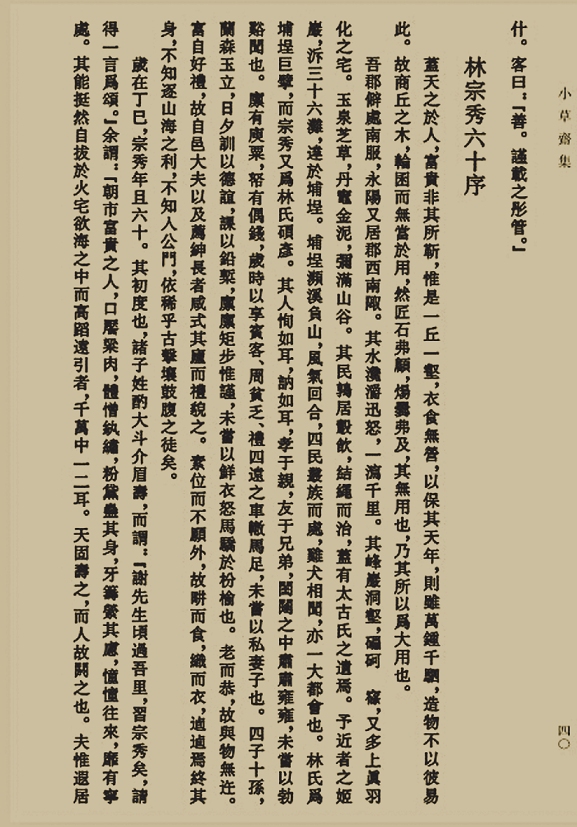 小草齋集
四〇
什。客曰：「善。謹載之彤管。」
林宗秀六十序
蓋天之於人，富貴非其所靳，惟是一丘一壑，衣食無營，以保其天年，則雖萬鍾千駟，造物不以彼易
此。故商丘之木，輪囷而無當於用，然匠石弗顧，煬爨弗及，其無用也，乃其所以爲大用也。
吾郡僻處南服，永陽又居郡西南陬。其水瀵瀯迅怒，一瀉千里。其峰巖洞壑，硼砢 窱，又多上眞羽
化之宅。玉泉芝草，丹竈金泥，彌滿山谷。其民鶉居鷇飲，結繩而治，蓋有太古氏之遺焉。予近者之姬
巖，泝三十六灘，達於埔埕。埔埕瀕溪負山，風氣回合，四民叢族而處，雞犬相聞，亦一大都會也。林氏爲
埔埕巨擘，而宗秀又爲林氏碩彥。其人恂如耳，訥如耳，孝于親，友于兄弟，閨闥之中肅肅雍雍，未嘗以勃
谿聞也。廩有庾粟，帑有偶錢，歲時以享賓客、周貧乏、禮四遠之車轍馬足，未嘗以私妻子也。四子十孫，
蘭森玉立，日夕訓以德誼，課以鉛槧，廩廩矩步惟謹，未嘗以鮮衣怒馬驕於枌榆也。老而恭，故與物無迕。
富自好禮，故自邑大夫以及薦紳長者咸式其廬而禮貌之。素位而不願外，故畊而食，織而衣，逌逌焉終其
身，不知逐山海之利，不知入公門，依稀乎古擊壤鼓腹之徒矣。
歲在丁巳，宗秀年且六十。其初度也，諸子姓酌大斗介眉壽，而謂：「謝先生頃過吾里，習宗秀矣，請
得一言爲頌。」余謂：「朝市富貴之人，口饜粱肉，體憎紈繡，粉黛蠱其身，牙籌縈其慮，憧憧往來，靡有寧
處。其能挺然自拔於火宅欲海之中而高蹈遠引者，千萬中一二耳。天固壽之，而人故闕之也。夫惟遐居